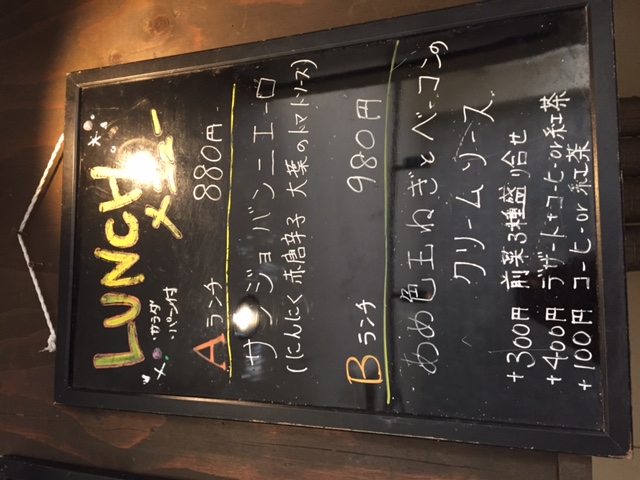 LUNCH
メニュー
サラダ
パン付
Aランチ 880円
サンジョバンニエーロ
(にんにく 赤唐辛子 大葉のトマトソース)
Bランチ 980円
あめ色玉ねぎとベーコンの
クリームソース
+300円 前菜3種盛り合せ
+400円 デザート+コーヒーor紅茶
+100円 コーヒーor紅茶